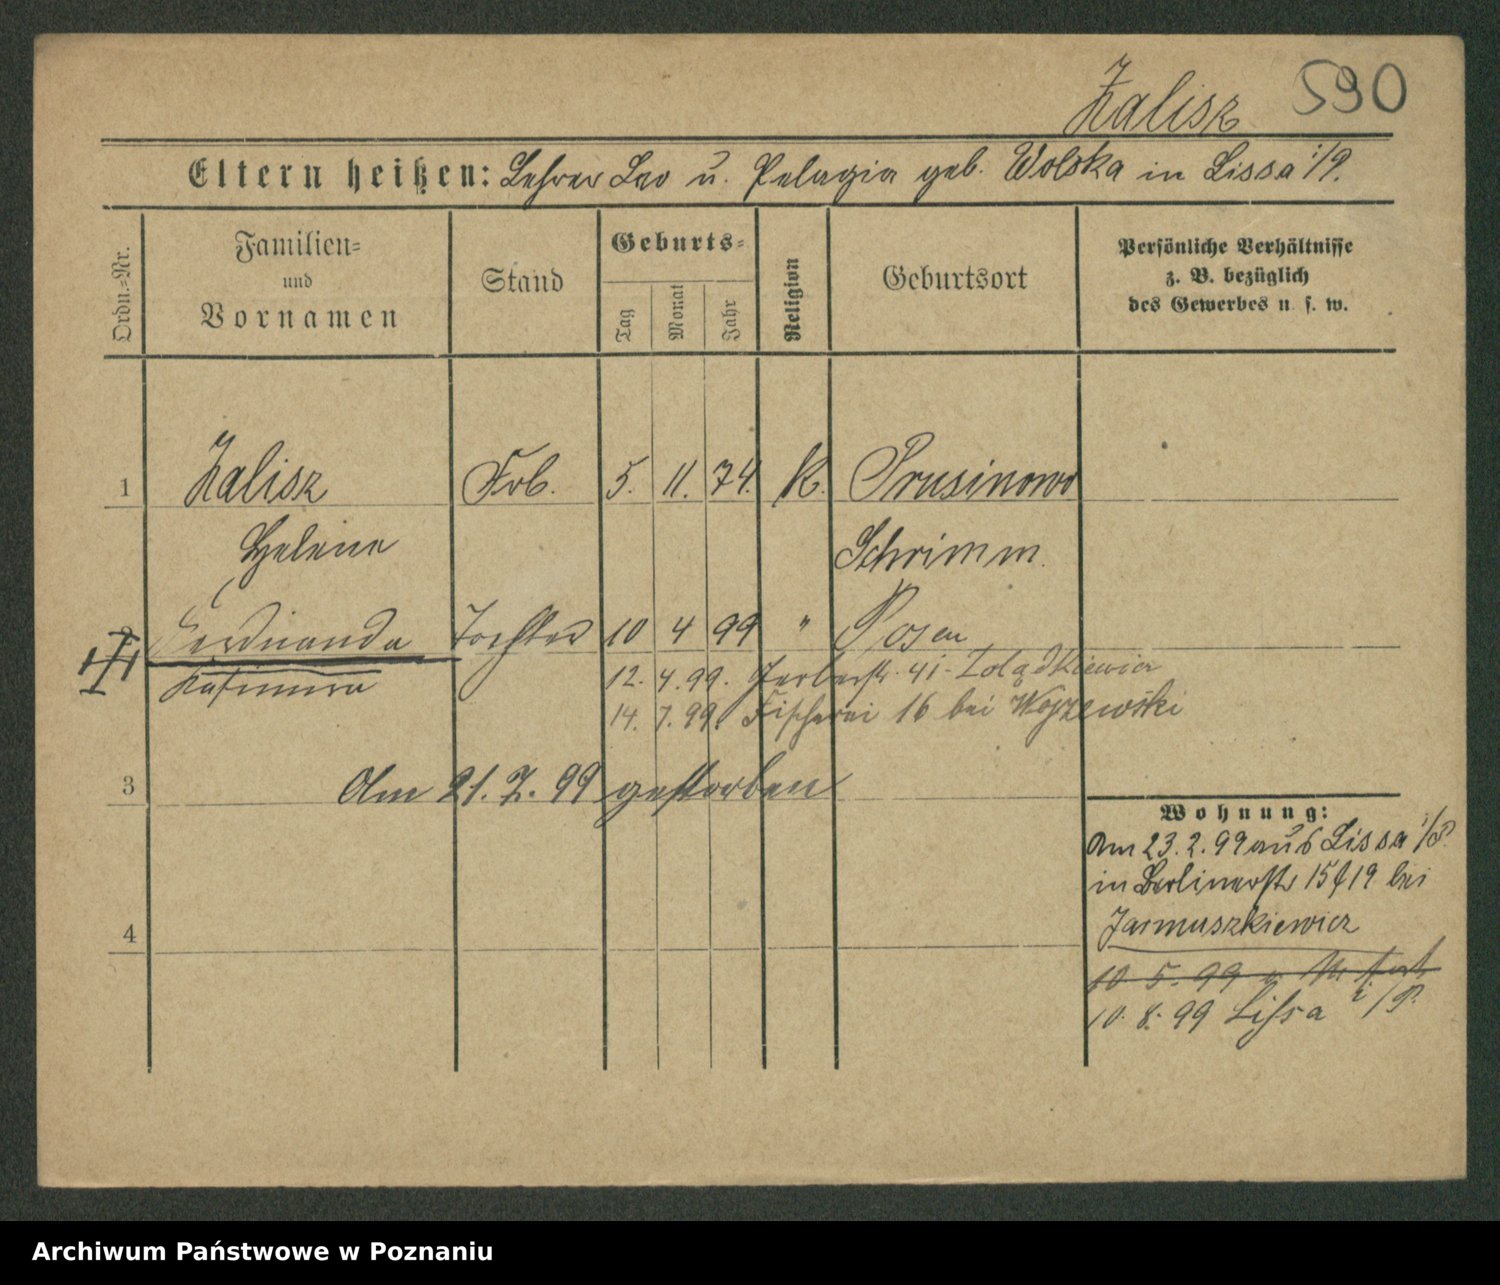 Kalisz 590
Eltern heißen: Lehrer Leo u. Pelagia geb. Wolska in Lissa i/P.
Ordn.=Nr.
Familien=
und
Vornamen
Stand
Geburts=
Tag
Monat
Jahr
Religion
Geburtsort
Persönliche Verhältnisse
z. B. bezüglich
des Gewerbes u. s. w.
1 Kalisz Frl. 5. 11. 74. K. Prusinowo
Helene Schrimm
2 Ferdinanda Tochter 10 4 99 " Posen
Kasimira 12. 4. 99. Gerberstr. 41 - Zolądkiewicz
14. 7. 99. Fischerei 16 bei
3 Am 21. 7. 99 gestorben
Wohnung:
Am 23. 2. 99 aus Lissa i/P.
in Berlinerstr 15/19 bei
Jarmuszkiewicz
4
10. 5. 99
10. 8. 99 Lissa i/P.
Archiwum Państwowe w Poznaniu